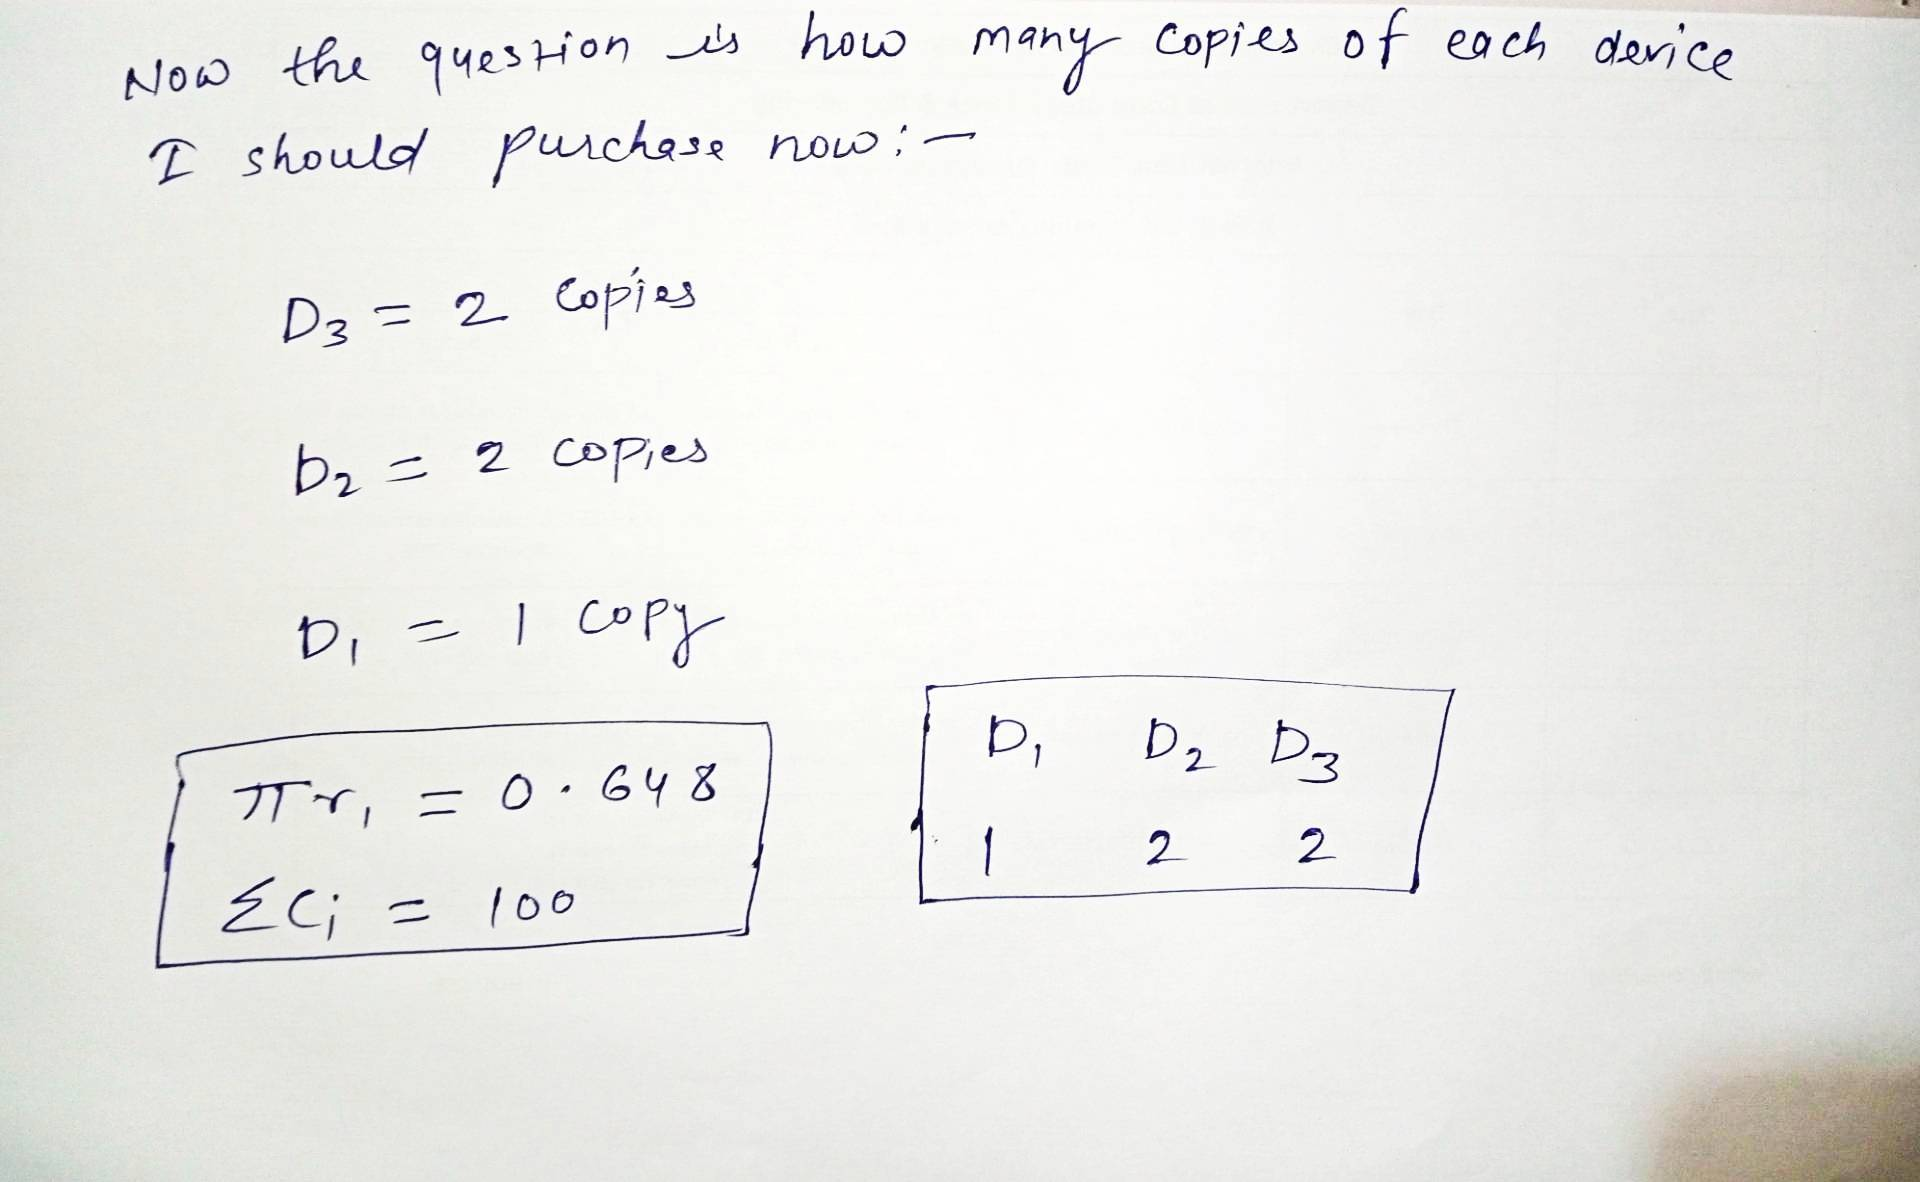 Now the question is how many copies of each device
I should purchase now :-
D3 = 2 copies
D2 = 2 copies
D1 = 1 copy
πr1 = 0.648
ΣCi = 100
D1 D2 D3
1 2 2